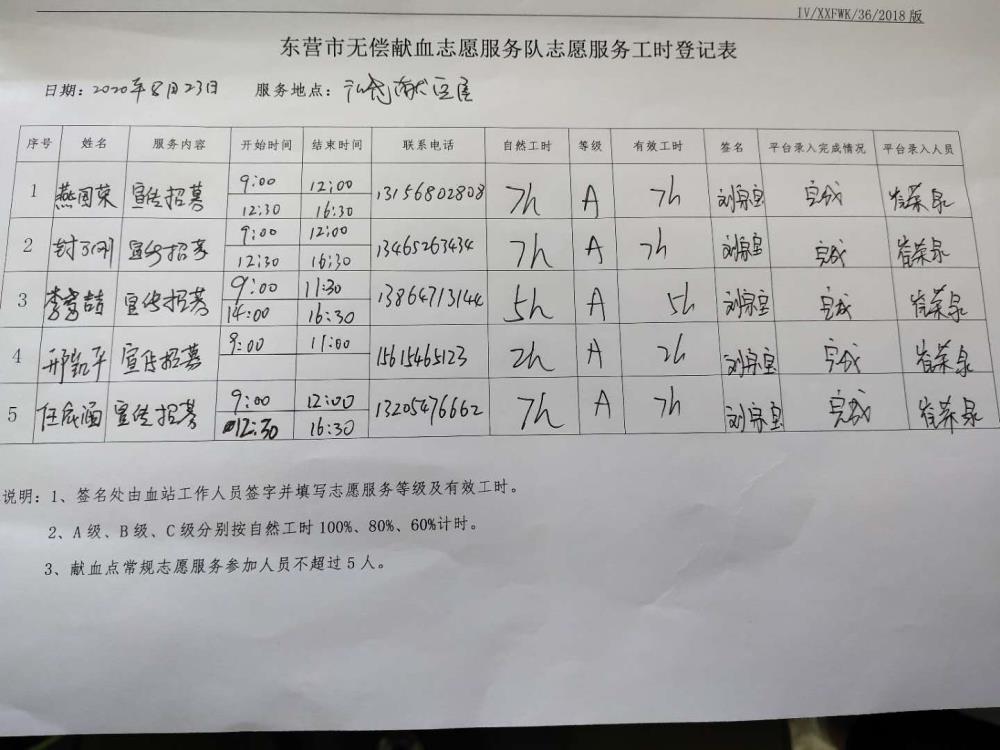 IV/XXFWK/36/2018版
东营市无偿献血志愿服务队志愿服务工时登记表
日期：2020年8月23日 服务地点： 献血屋
序号 姓名 服务内容 开始时间 结束时间 联系电话 自然工时 等级 有效工时 签名 平台录入完成情况 平台录入人员
1 燕国荣 宣传招募 9:00 12:00 13156802808 7h A 7h 刘宗宝 完成 崔荣泉
12:30 16:30
2 宣传招募 9:00 12:00 13465263434 7h A 7h 刘宗宝 完成 崔荣泉
12:30 16:30
3 李秀喆 宣传招募 9:00 11:30 13864713144 5h A 5h 刘宗宝 完成 崔荣泉
14:00 16:30
4 邢凯平 宣传招募 9:00 11:00 15615465123 2h A 2h 刘宗宝 完成 崔荣泉
5 宣传招募 9:00 12:00 13205476662 7h A 7h 刘宗宝 完成 崔荣泉
12:30 16:30
说明：1、签名处由血站工作人员签字并填写志愿服务等级及有效工时。
2、A级、B级、C级分别按自然工时100%、80%、60%计时。
3、献血点常规志愿服务参加人员不超过5人。